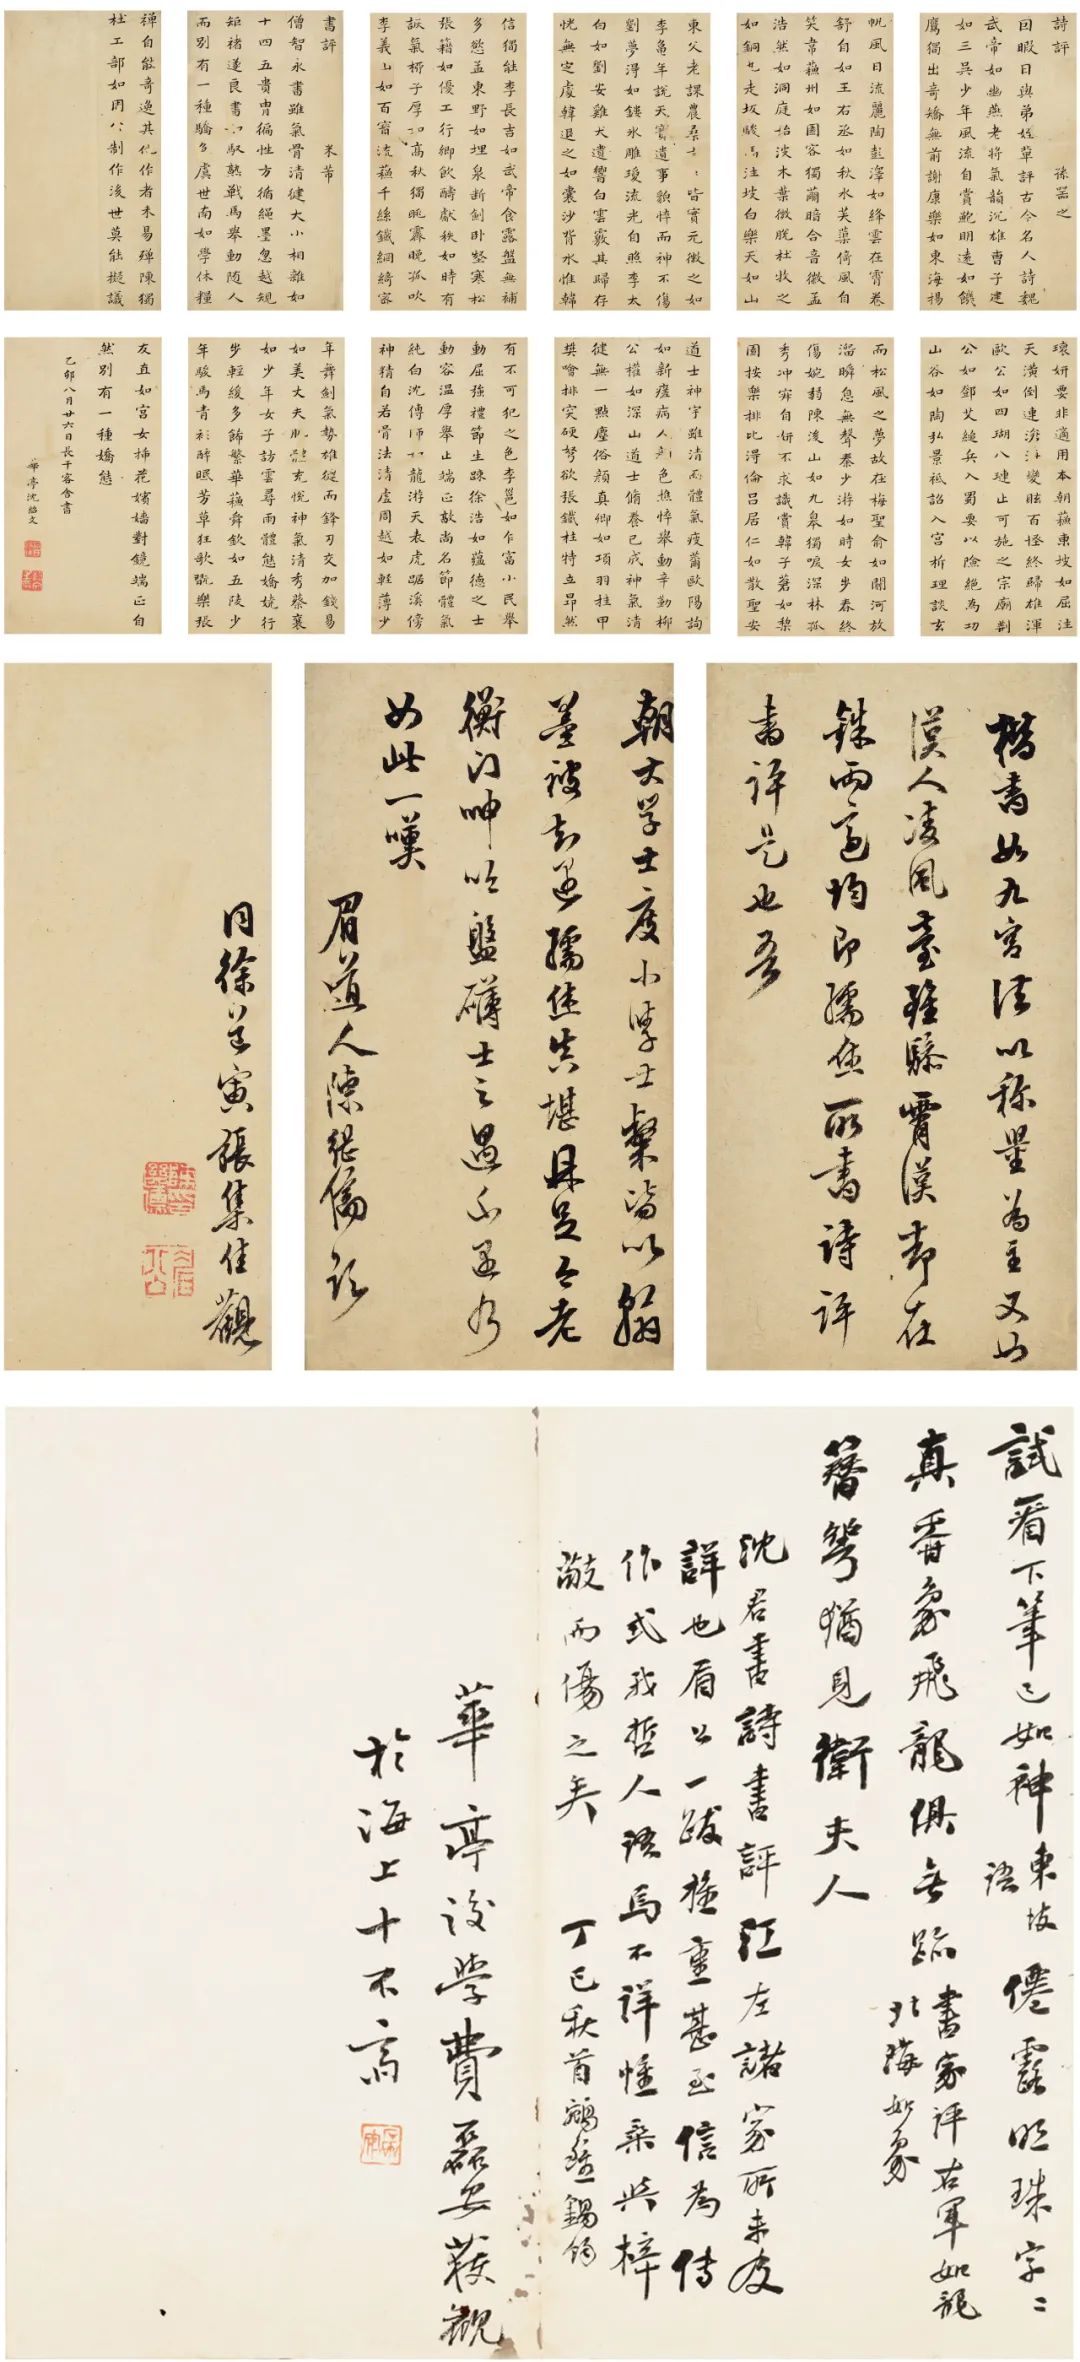 詩評　孫器之
因暇日與弟姪輩評古今名人詩魏
武帝如幽燕老將氣韻沉雄曹子建
如三吳少年風流自賞鮑明遠如饑
鷹獨出奇矯無前謝康樂如東海揚
帆風日流麗陶彭澤如絳雲在霄卷
舒自如王右丞如秋水芙蕖倚風自
笑韋蘇州如園客獨繭暗合音徽孟
浩然如洞庭始波木葉微脫杜牧之
如銅丸走坂駿馬注坡白樂天如山
東父老課農桑言〻皆實元微之如
李龜年說天寶遺事貌悴而神不傷
劉夢得如鏤冰雕瓊流光自照李太
白如劉安雞犬遺響白雲覈其歸存
恍無定處韓退之如囊沙背水惟韓
信獨能李長吉如武帝食露盤無補
多慾孟東野如埋泉斷劍卧壑寒松
張籍如優工行鄉飲醻獻秩如時有
詼氣柳子厚如高秋獨眺霽晚孤吹
李義山如百寶流蘇千絲鐵網綺密
書評　米芾
僧智永書雖氣骨清健大小相雜如
十四五貴胄徧性方循繩墨忽越規
矩褚遂良書如馭熟戰馬舉動随人
而別有一種驕色虞世南如學休糧
禪自能奇逸其他作者未易殫陳獨
杜工部如周公制作後世莫能擬議
瓌妍要非適用本朝蘇東坡如屈注
天潢倒連滄海變眩百怪終歸雄渾
歐公如四瑚八璉止可施之宗廟荆
公如鄧艾縋兵入蜀要以險絕為功
山谷如陶弘景祗詔入宮析理談玄
而松風之夢故在梅聖俞如關河放
溜瞬息無聲秦少游如時女步春終
傷婉弱陳後山如九皋獨唳深林孤
秀冲寂自妍不求識賞韓子蒼如棃
園按樂排比得倫呂居仁如散聖安
道士神宇雖清而體氣疲薾歐陽詢
如新瘥病人顏色憔悴舉動辛勤柳
公權如深山道士脩養已成神氣清
健無一點塵俗顏真卿如項羽挂甲
樊噲排突硬弩欲張鐵柱特立昂然
有不可犯之色李邕如乍富小民舉
動屈强禮節生踈徐浩如蘊德之士
動容温厚舉止端正敦尚名節體氣
純白沈傳師如龍游天表虎踞溪傍
神精自若骨法清虛周越如輕薄少
年舞劍氣勢雄健而鋒刃交加錢易
如美丈夫肌體充悅神氣清秀蔡襄
如少年女子訪雲尋雨體態嬌嬈行
步輕緩多飾繁華蘇舜欽如五陵少
年駿馬青衫醉眠芳草狂歌院樂張
友直如宮女插花嬪嬙對鏡端正自
然別有一種嬌態
乙卯八月廿六日長干客舍書
華亭沈紹文
楷書如九宮法以称量為主又如
漢人凌風臺雖縣霄漢却在
銖兩適均即孺休所書詩評
書評是也吾
朝大学士度小学士粲皆以翰
墨被知遇孺休真堪鼎足乃老
衡门呻吟盤礴士之遇不遇乃
如此一嘆
眉道人陳繼儒记
同徐益寅張集佳觀
試看下筆已如神東坡語僊露明珠字〻
真香象飛龍俱无跡書家評右軍如龍北海如象
簪筓猶見衛夫人
沈君書詩書評江左諸家所未及
詳也眉公一跋推重甚至信為傳
作或我哲人語焉不詳惟桑與梓
敬而傷之矣　丁巳秋首錫鈞
華亭後學費磊安获觀
於海上十不斋